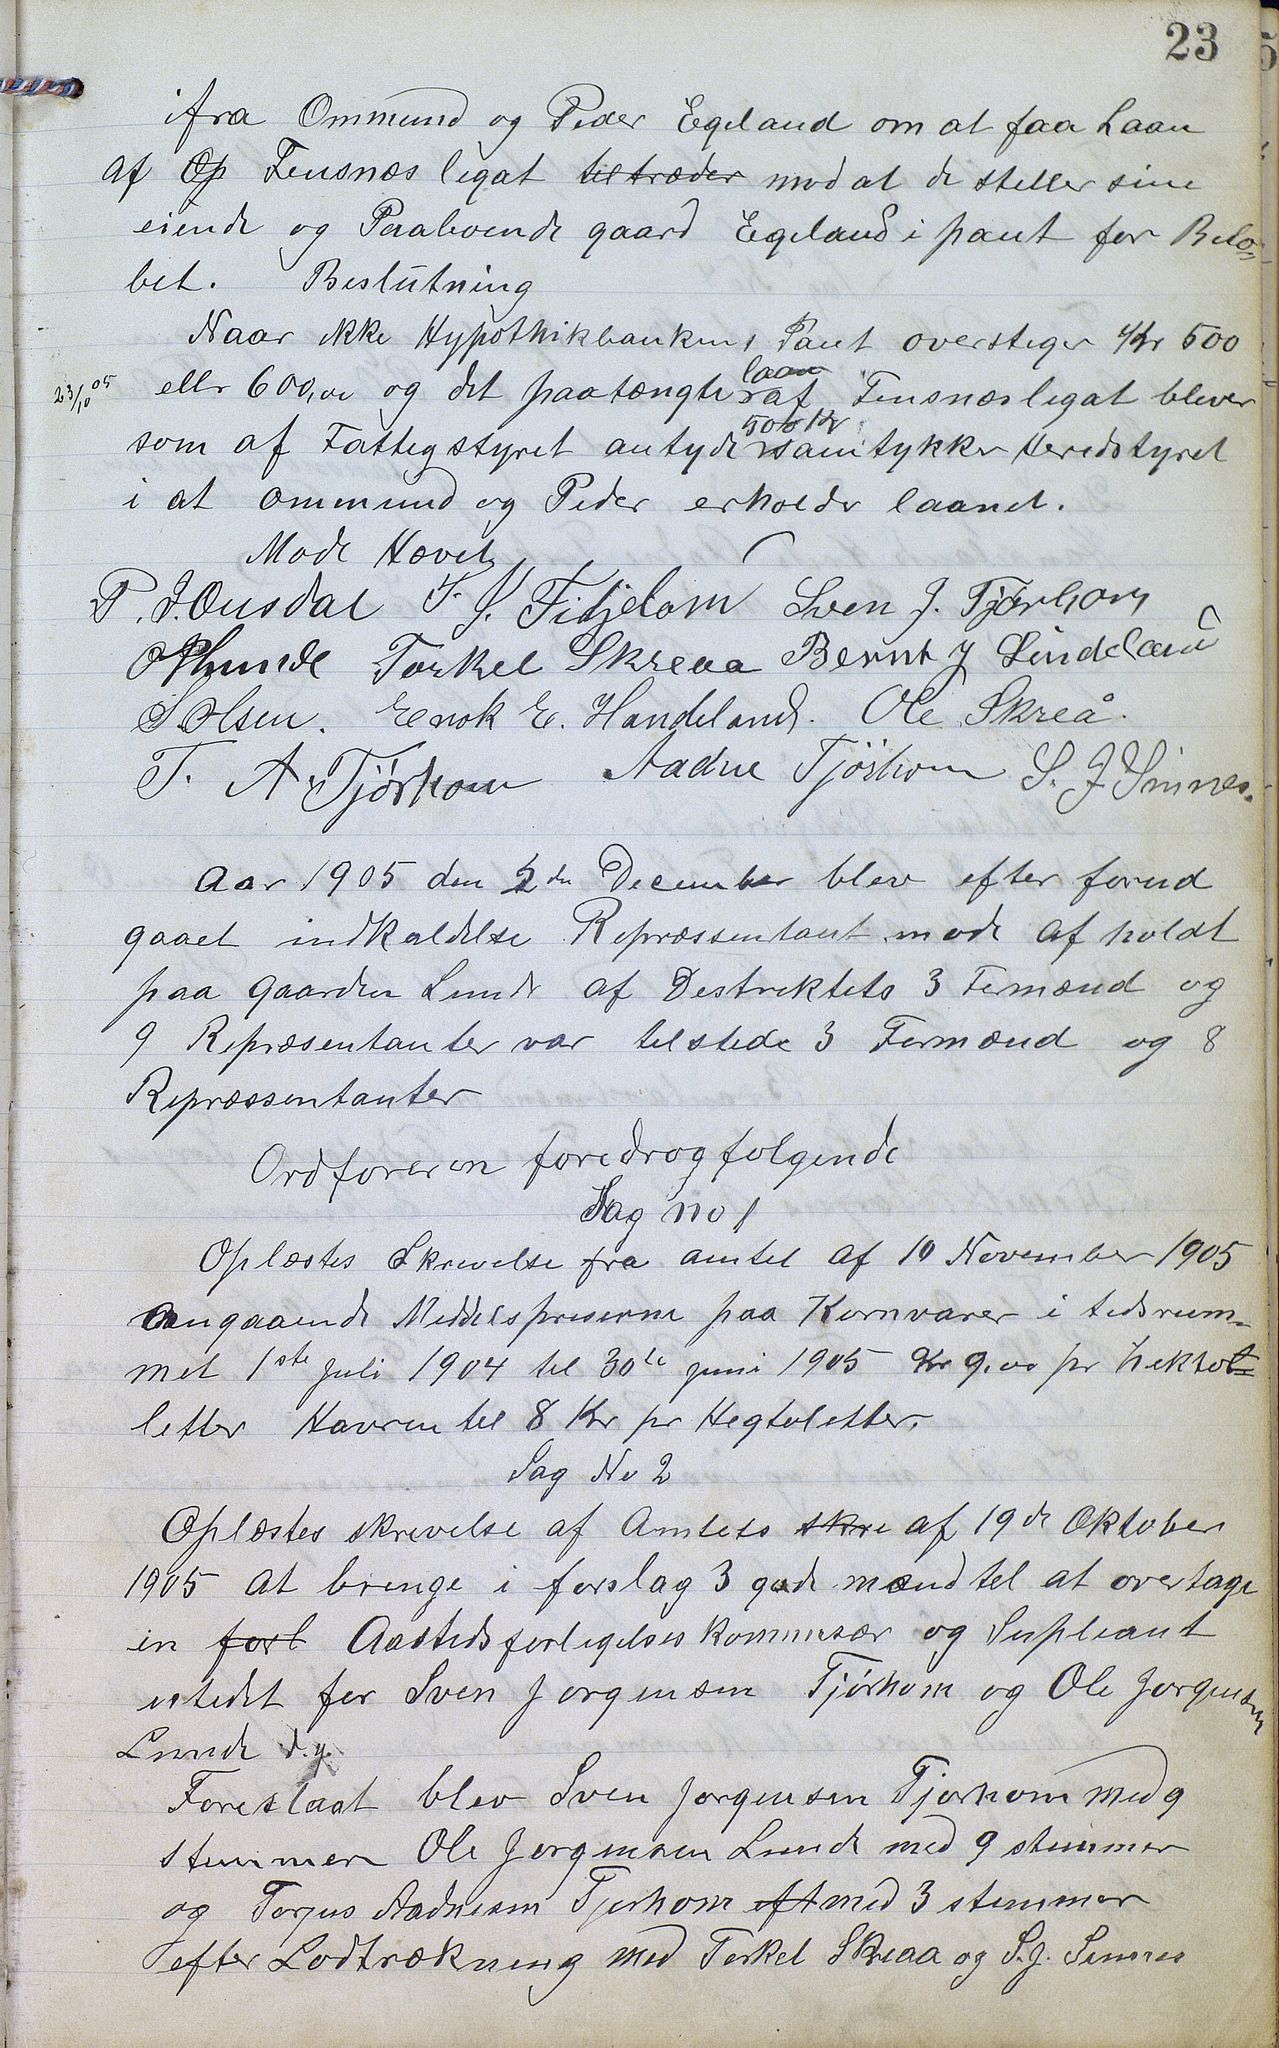 23
ifra Ommund og Peder Egeland om at faa Laan
af Op Fensnæs legat tiltræder mod at de steller sine
eiende og Paaboende gaard Egeland i pant for Belø,
bet. Beslutning
Naar ikke Hypothikbankens Pant overstiger Kr 500
23/10 05
laan
eller 600,00 og det paatængte af Fensnæslegat blever
500 Kr
som af Fattigstyret antyde samtykker Heredstyret
i at Ommund og Peder erholder laanet.
Mode Hævet
P. J. Ousdal T. S. Fidjelam Sven J. Tjørhom
O P Lunde Torkel Skreaa Bernt J Lindeland
S Olsen. Enok E. Handeland. Ole Skreå.
T. A. Tjørhom Aadne Tjørhom S. J Sinnes.
Aar 1905 den 2den December blev efter forud
gaaet indkaldelse Repræssentant møde af holdt
paa Gaarden Lunde af Destrektets 3 Formænd og
9 Repræsentanter var telstede 3 Formænd og 8
Repræssentanter
Ordføreren foredrog følgende
Sag no 1
Oplæstes Skrivelse fra amtet af 10 November 1905
angaaende Meddelspreserne paa Kornvarer i tedsrum-
met 1ste Juli 1904 til 30te juni 1905 Kr 9.00 pr hektol=
letter Havren tel 8 Kr pr Hegtoletter.
Sag No 2
Oplæstes skrevelse af Amtets skre af 19de Oktober
1905 at brenge i forslag 3 gode mænd tel at overtage
en forl Aastedsforligelses kommesær og Supleant
istedet for Sven Jørgensen Tjørhom og Ole Jørgensen
Lunde d.y.
Foreslaat blev Sven Jørgensen Tjørhom med 9
stemmer Ole Jørgensen Lunde med 9 stemmer
og Torjus Aadnesen Tjørhom eft med 3 stemmer
efter Lodtrækneng med Torkel Skreaa og S. J. Sennes